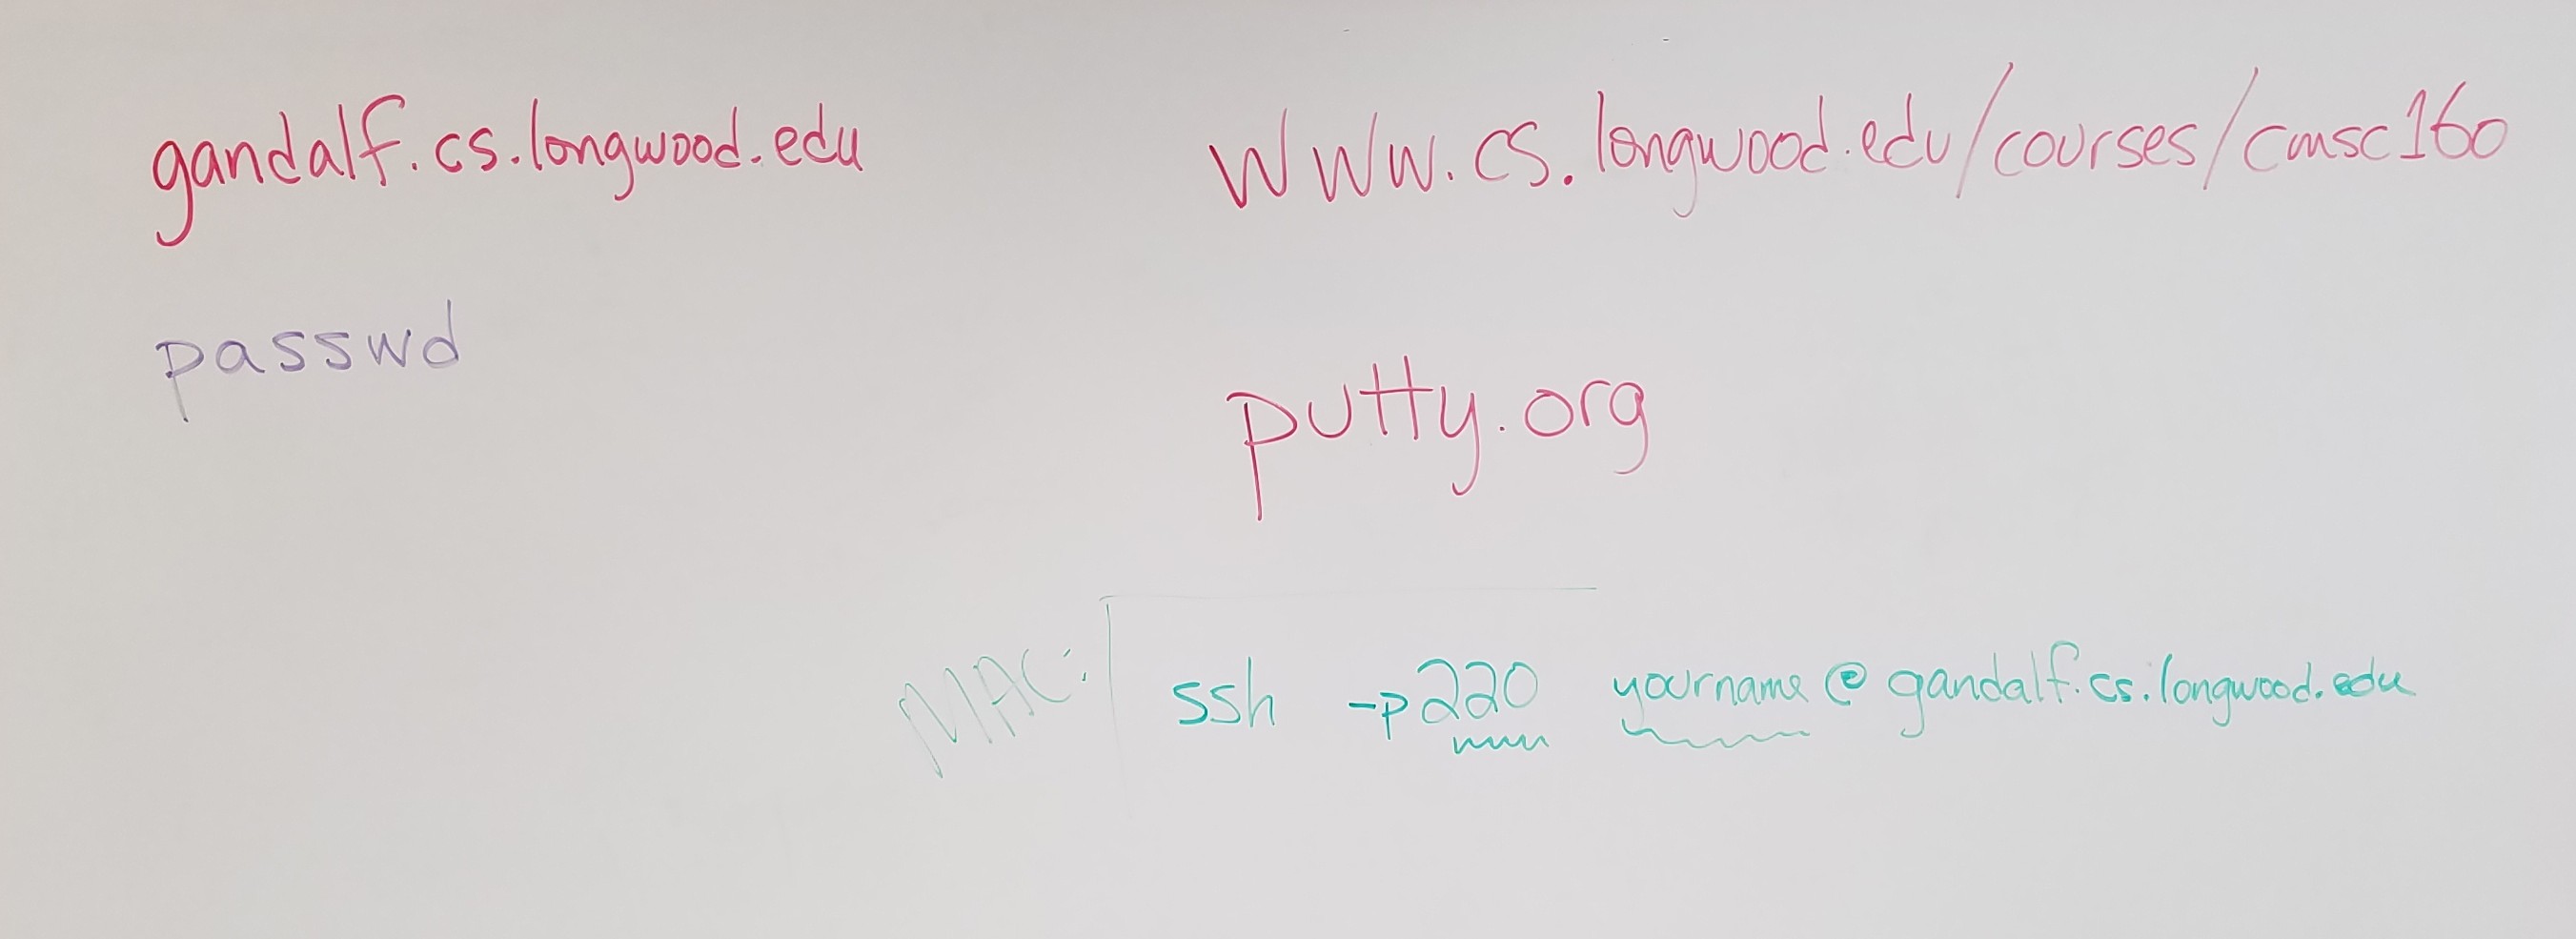 gandalf.cs.longwood.edu
www.cs.longwood.edu/courses/cmsc160
passwd
putty.org
MAC:
ssh -p220 yourname@gandalf.cs.longwood.edu